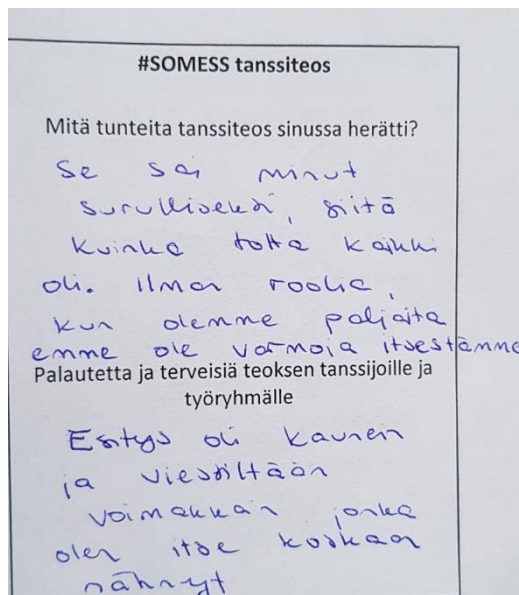 #SOMESS tanssiteos
Mitä tunteita tanssiteos sinussa herätti?
Se sai minut
surulliseksi, siitä
kuinka totta kaikki
oli. ilman roolia,
kun olemme paljaita
emme ole varmoja itsestämme
Palautetta ja terveisiä teoksen tanssijoille ja
työryhmälle
Esitys oli kaunein
ja viestiltään
voimakkain jonka
olen itse koskaan
nähnyt